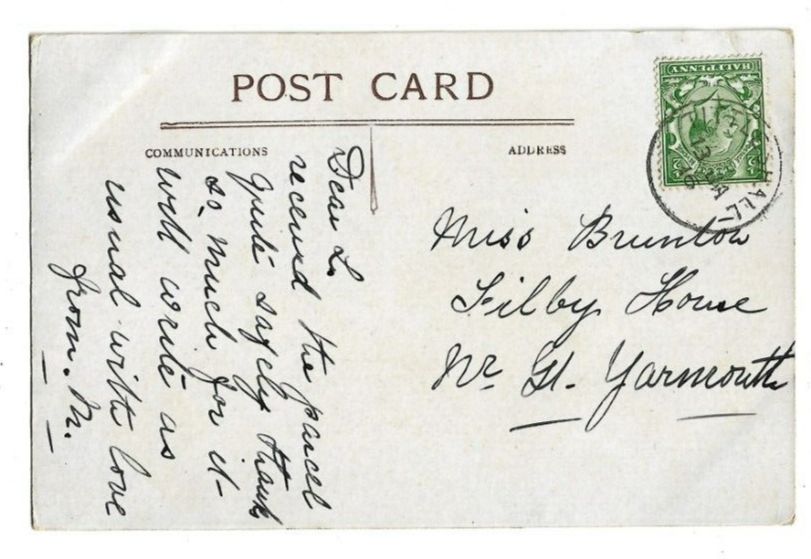 POST CARD
COMMUNICATIONS
ADDRESS
HALFPENNY
Dear L.
received the parcel
quite safely thank
so much for it -
will write as
usual with love
from. M.
Miss Brunton
Filby House
Nr. Gt. Yarmouth